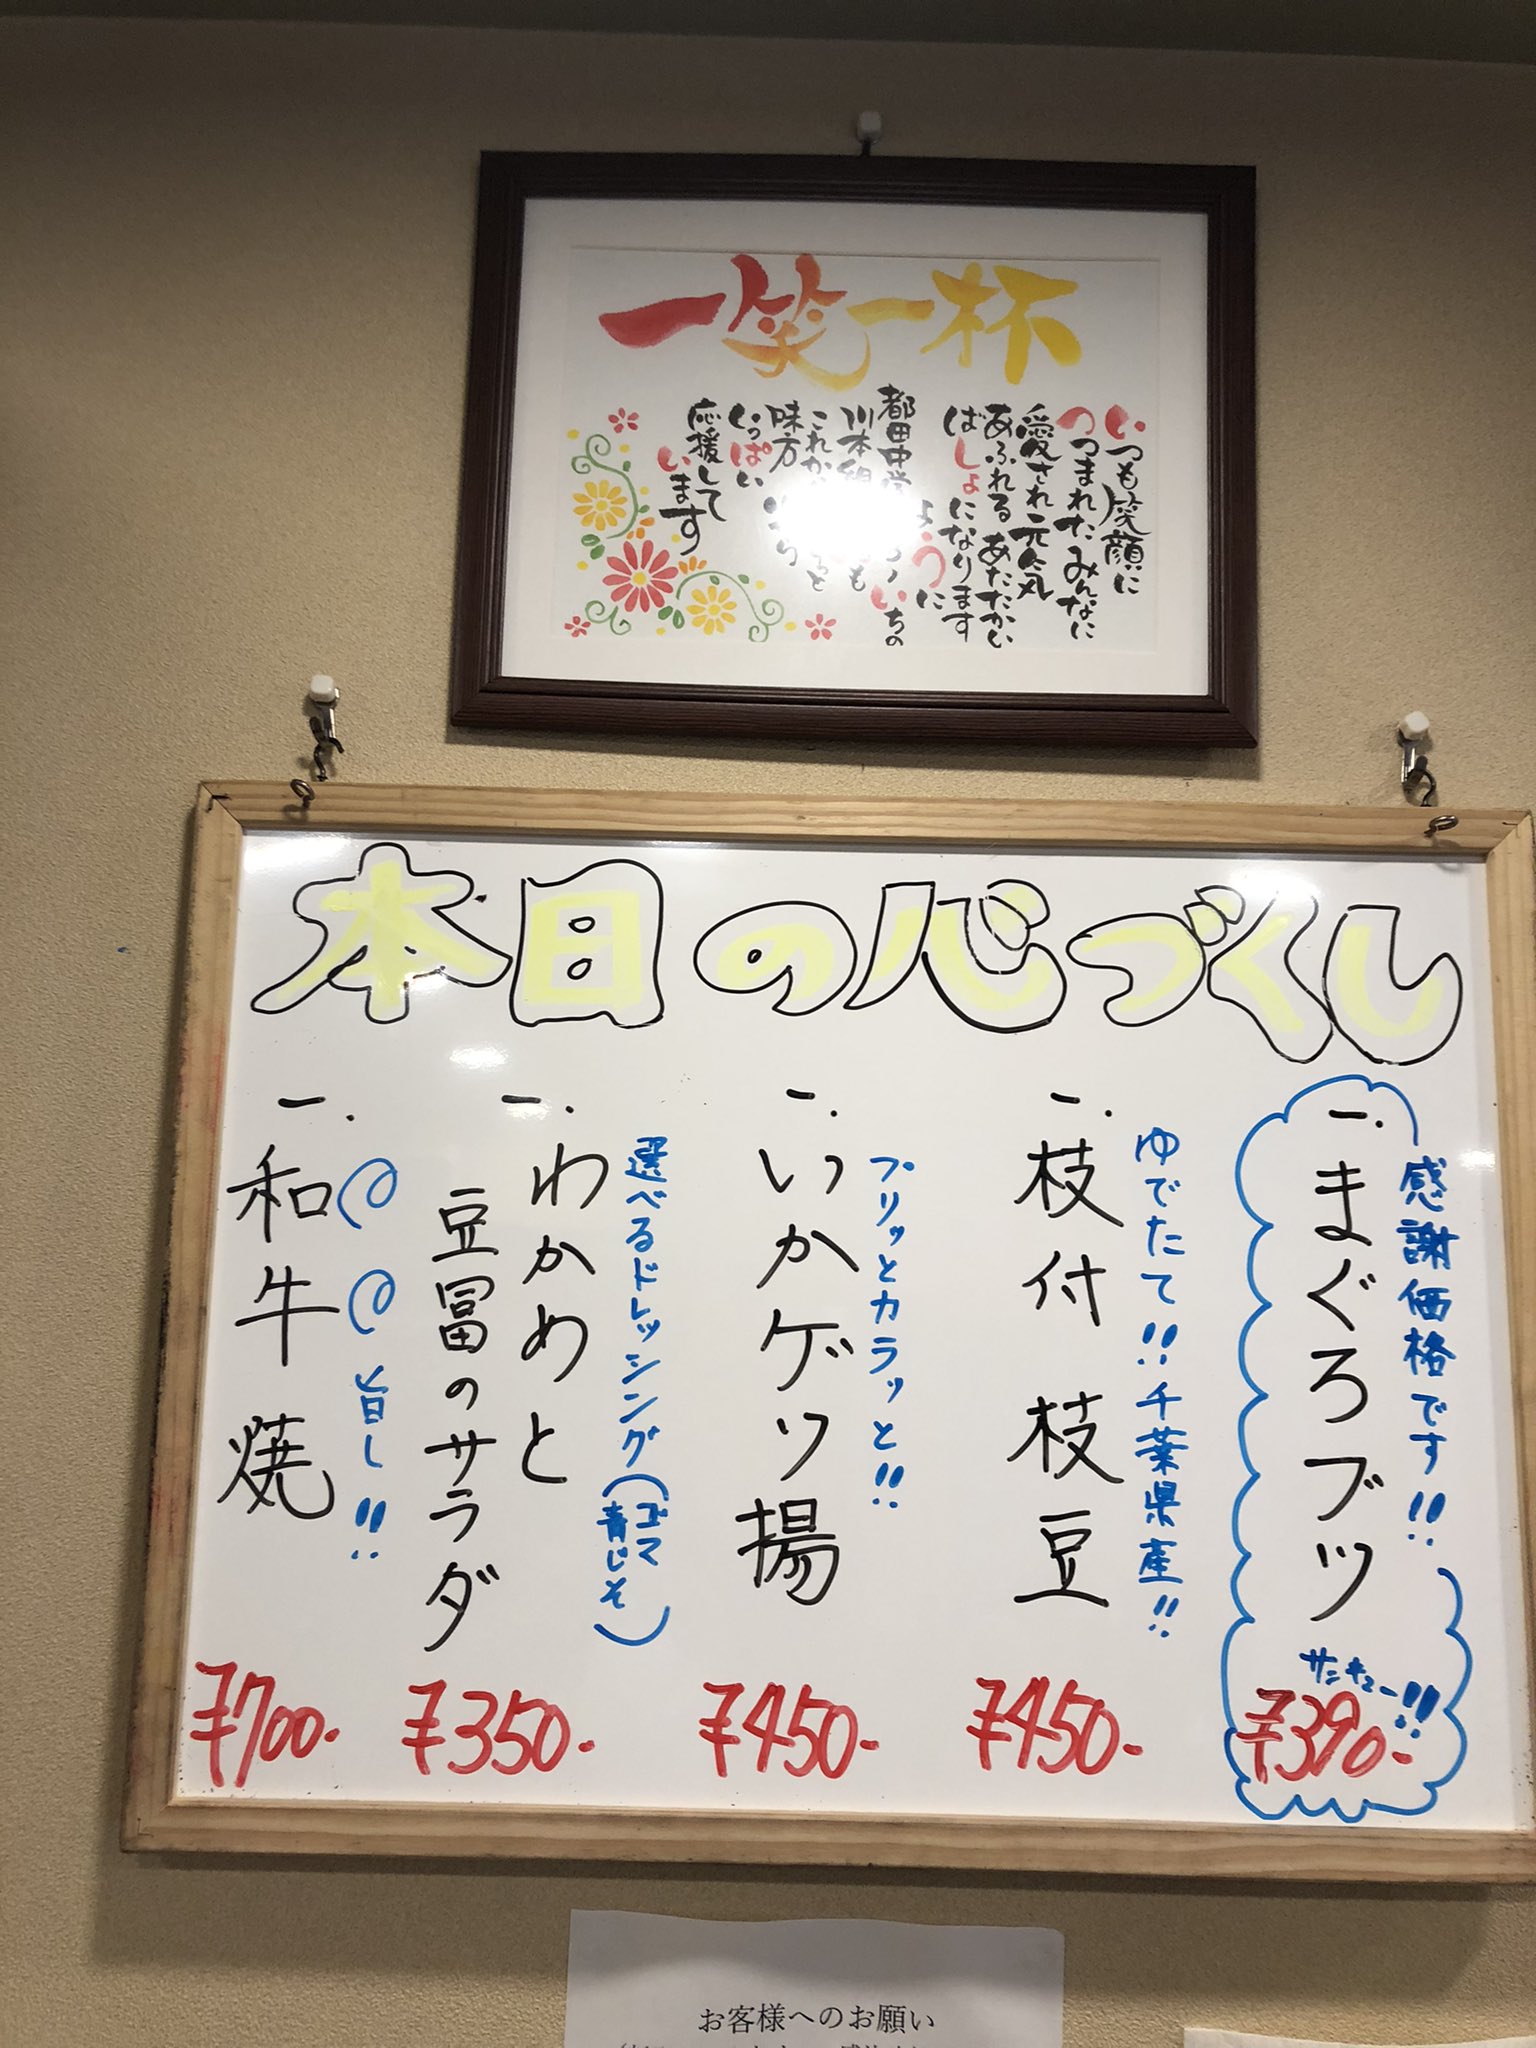 一笑一杯
いつも笑顔に
つつまれたみんなに
愛され元気
あふれるあたたかい
ばしょになります
ように
都田中学
いちの
川本組
も
これか
味方
いっぱい
応援して
います
本日の心づくし
感謝価格です!!
一.まぐろブツ
サンキュー!!
¥390-
ゆでたて!!千葉県産!!
一.枝付枝豆
¥450-
プリッとカラッと!!
一.いかゲソ揚
¥450-
選べるドレッシング(ゴマ
青じそ)
一.わかめと
豆冨のサラダ
¥350-
旨し!!
一.和牛焼
¥700-
お客様へのお願い